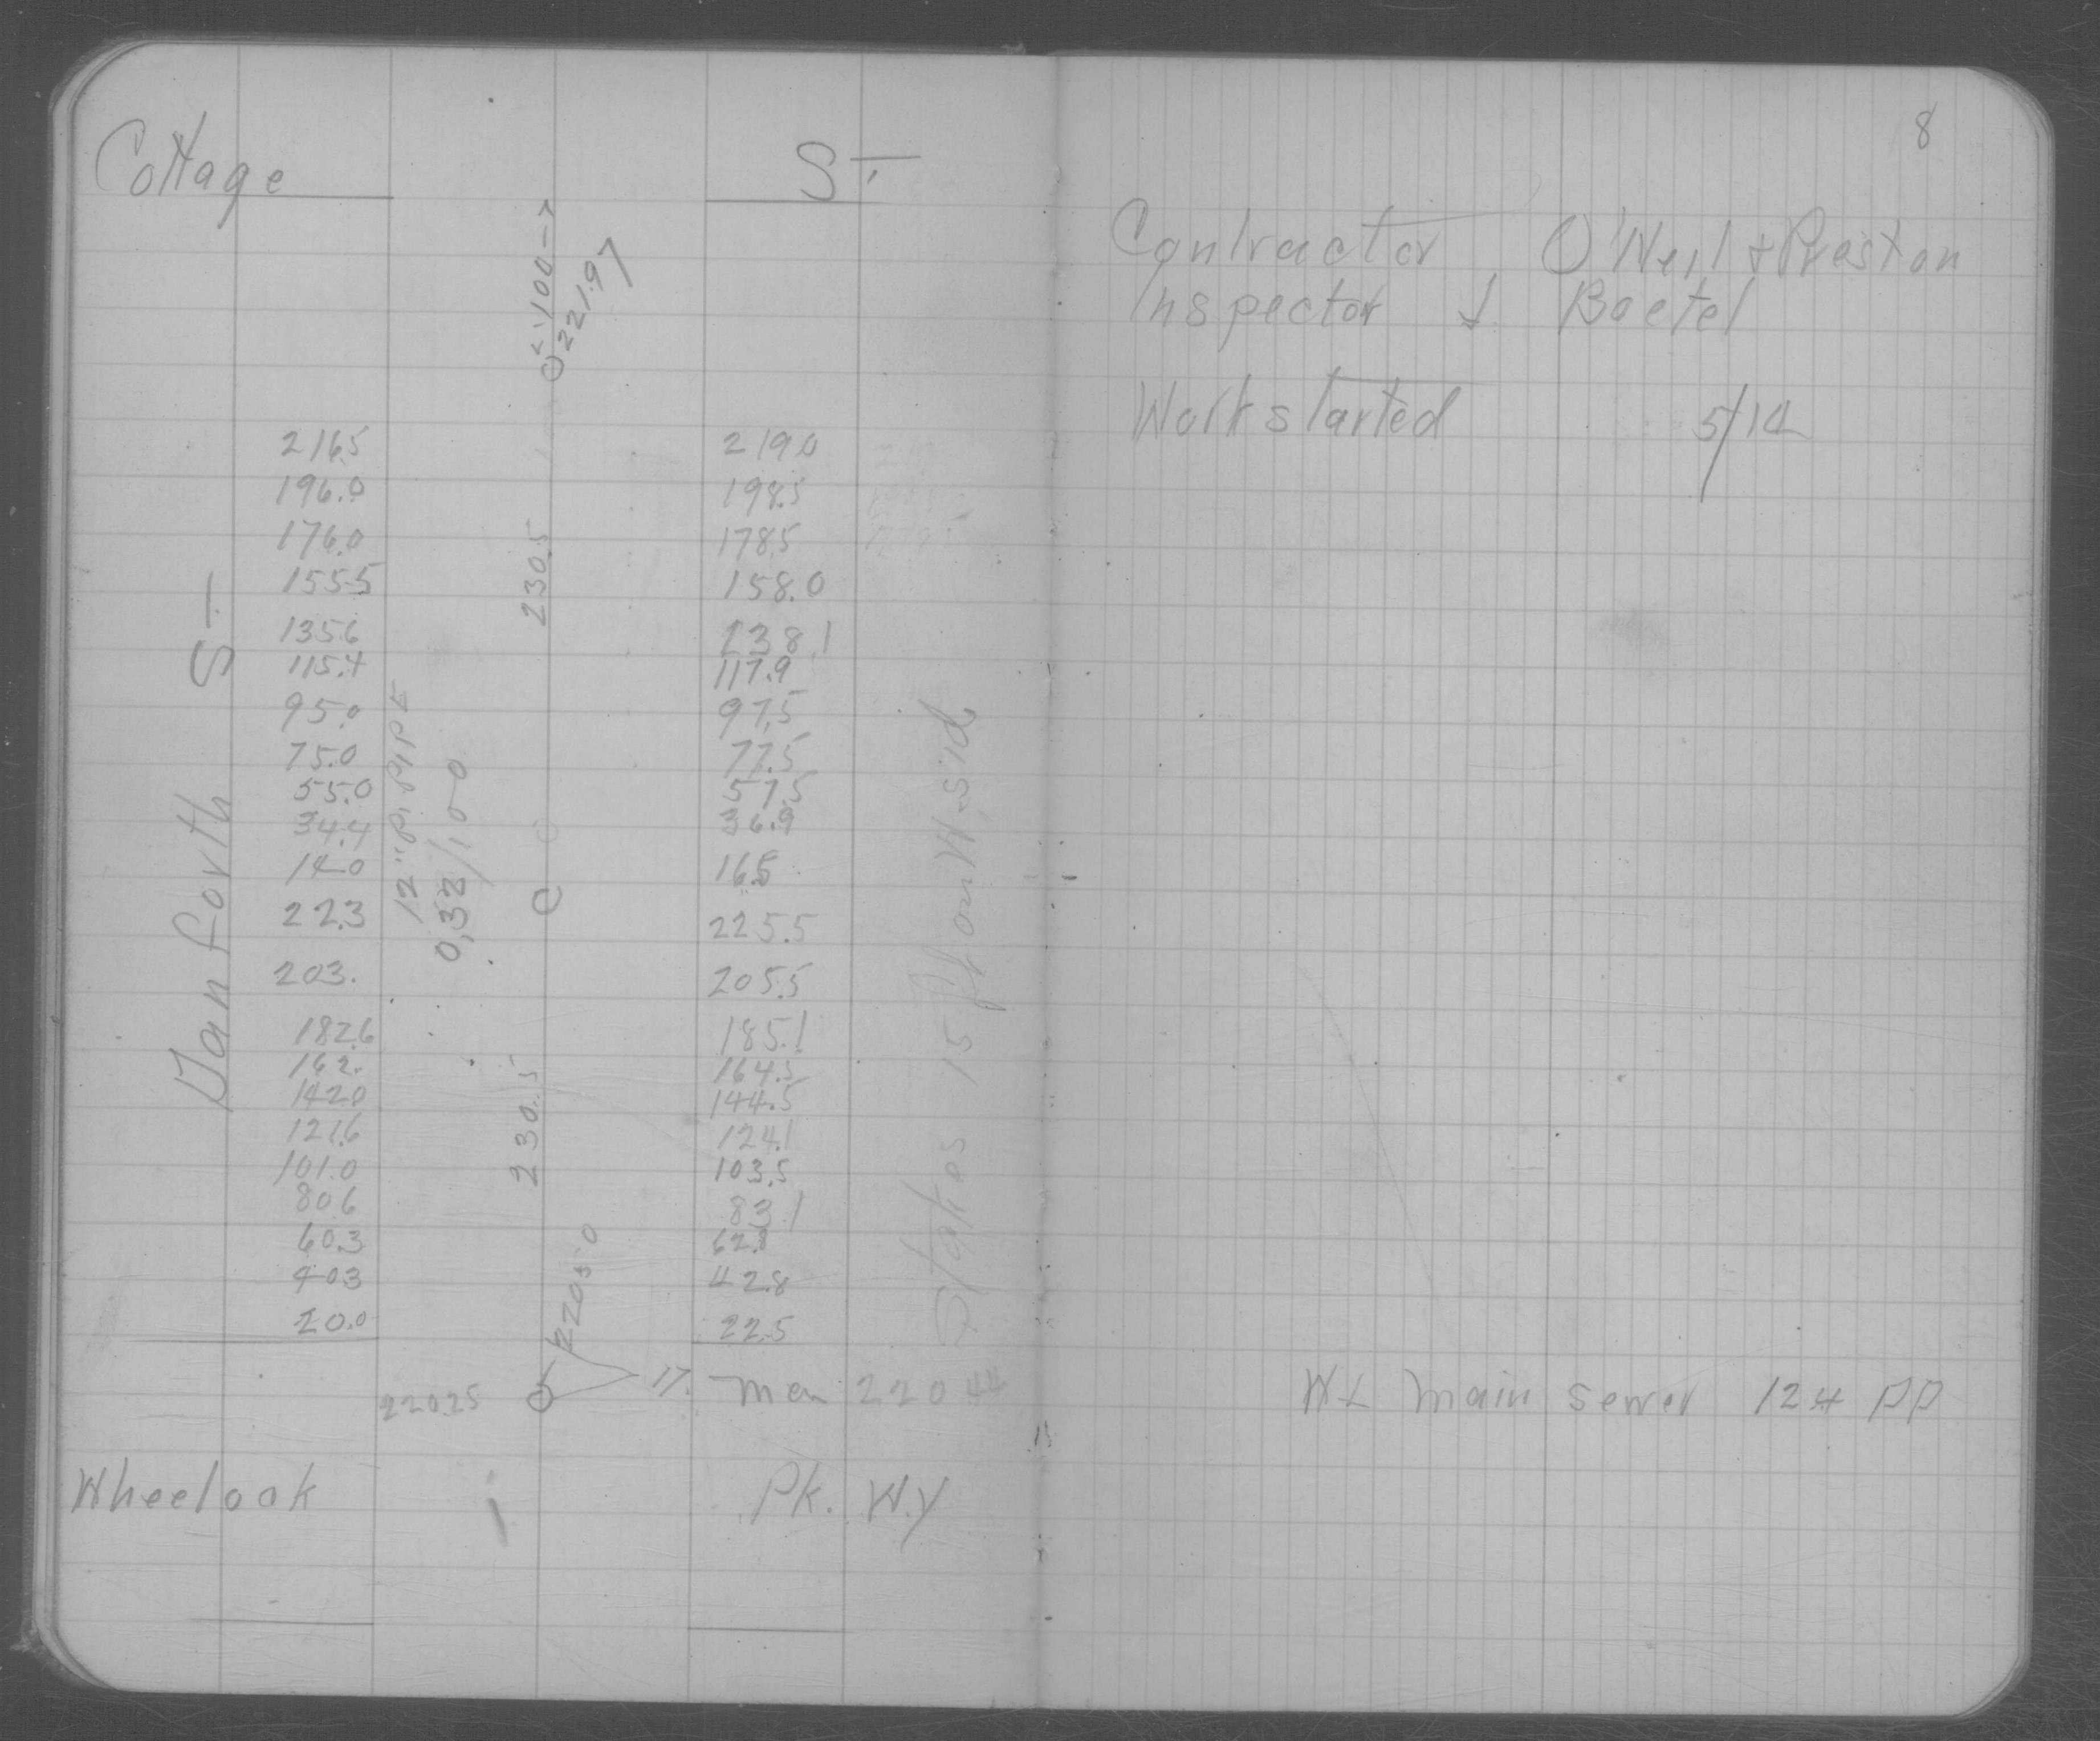 8
Cottage St.
<-100->
221.97
Contractor O'Neil + Preston
Inspector J Boetel
Work started 5/14
216.5 219.0
196.0 198.5
176.0 178.5
155.5 158.0
230.5
135.6 138.1
115.4 117.9
95.0 97.5
75.0 77.5
55.0 57.5
34.4 36.9
14.0 16.5
22.3 225.5
203. 205.5
182.6 185.1
162. 164.5
142.0 144.5
121.6 124.1
101.0 103.5
80.6 83.1
60.3 62.8
40.3 42.8
20.0 22.5
Danforth St
12" P. Pipe
0.32/100
230.5
220.50
Stakes 15 ft on W. sid
220.25 17. man 220.44
Wt main sewer 124 pp
Wheelock Pk. Wy